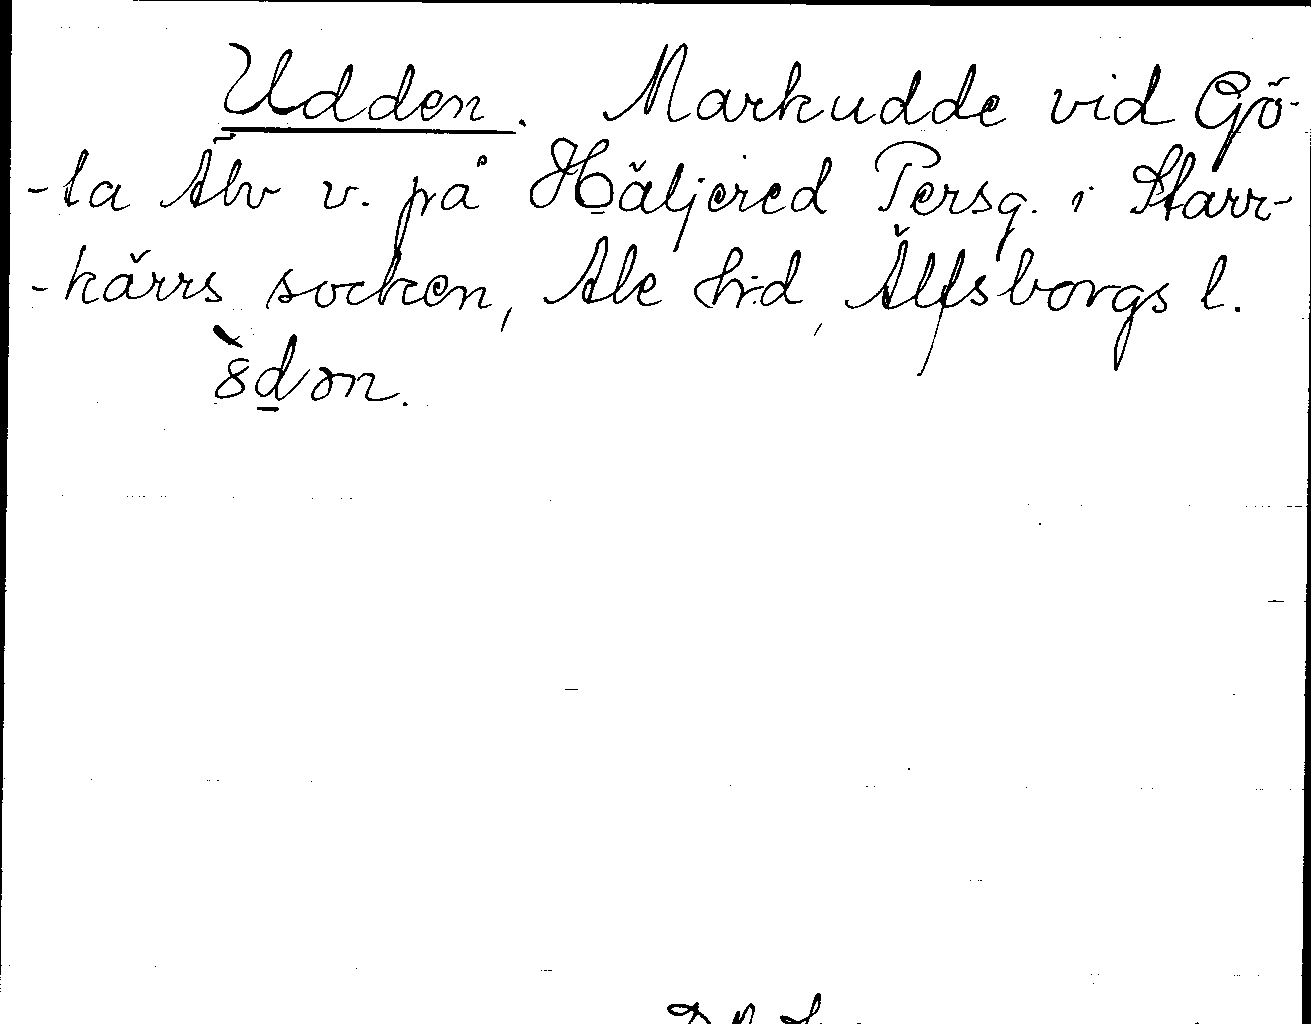 Udden. Markudde vid Gö-
-ta Älv v. på Häljered Persg. i Starr-
-kärrs socken, Ale hrd, Älfsborgs l.
ˋ8dən.